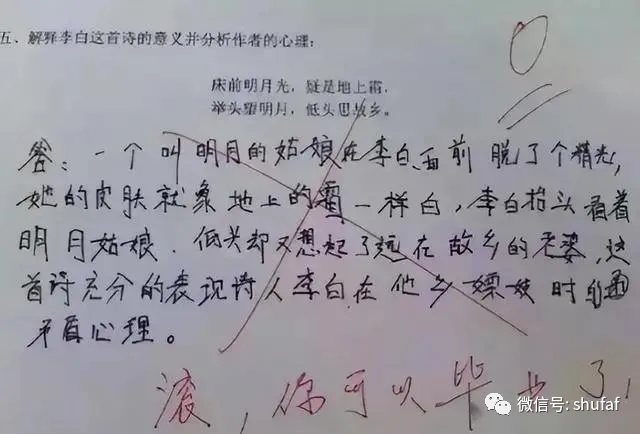 五、解释李白这首诗的意义并分析作者的心理:
床前明月光，疑是地上霜，
举头望明月，低头思故乡。
0
答：一个叫明月的姑娘在李白面前脱了个精光，
她的皮肤就象地上的霜一样白，李白抬头看着
明月姑娘．低头却又想起了远在故乡的老婆，这
首诗充分的表现诗人李白在他乡嫖妓时的
矛盾心理。
滚，你可以毕业了！
微信号: shufaf